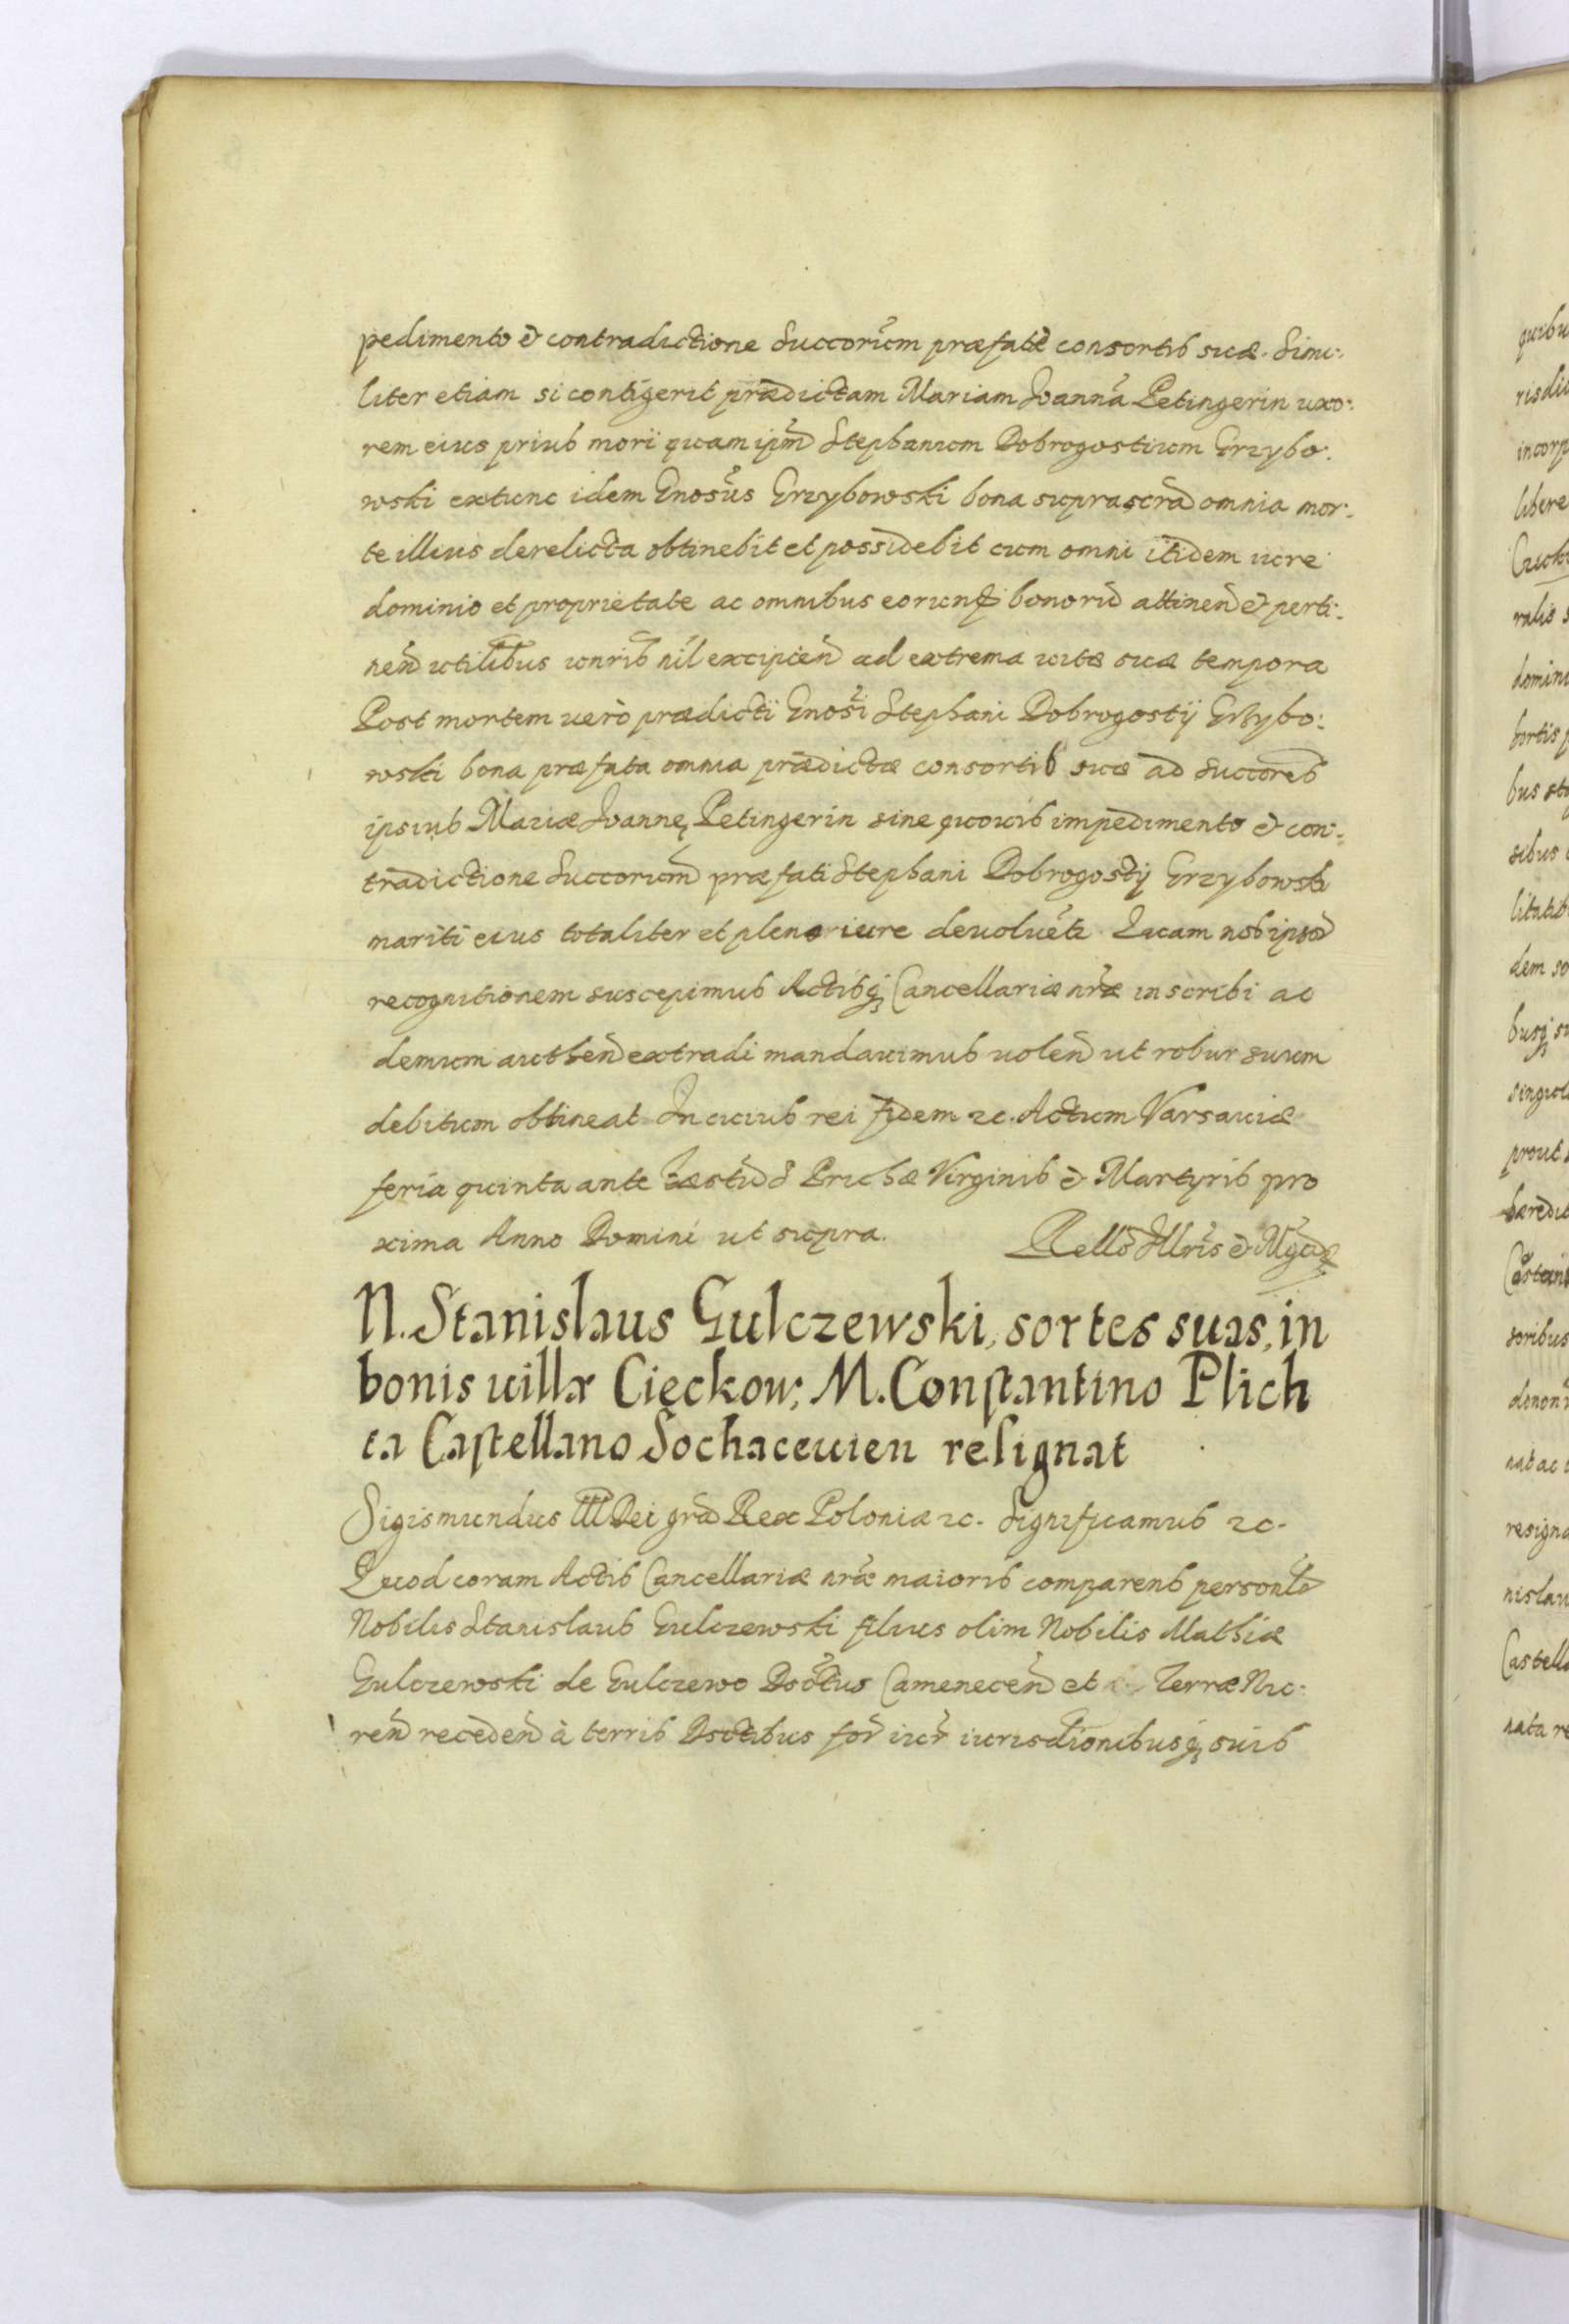 pedimento & contradictione Successorũm præfatę consortis suæ. Simi:
liter etiam si contigerit prædictam Mariam Joannã Petingerin uxo:
rem eius prius mori quam ipm̃ Stephanum Dobrogostium Grzybo:
wski extunc idem Gnosũs Grzybowski bona suprascrã omnia mor:
te illius derelicta obtinebit et possidebit cum omni itidem iure
dominio et proprietate ac omnibus eorund̃ bonorũ attineñ & perti:
neñ utilibus uñris nil excipieñ ad extrema uitæ suæ tempora
Post mortem uerò prædicti Gnosĩ Stephani Dobrogostij Grzybo:
wski bona præfata omnia prædictæ consortis suæ ad Succores
ipsius Mariæ Joannę Petingerin sine quouis impedimento & con:
tradictione Succorum̃ præfati Stephani Dobrogostij Grzybowski
mariti eius totaliter et pleno iure deuoluẽt. Quam nos ipsõ
recognitionem suscepimus Actisq́ꝫ Cancellariæ nr̃æ inscribi ac
demum autheñ extradi mandauimus uoleñ ut robur suum
debitum obtineat In cuius rei fidem ꝛc. Actum Varsauiæ
feria quinta ante Fæstũ S Priscæ Virginis & Martyris pro
xima Anno Domini ut supra. Rellõ Illr̃is & Mgcĩ
N. Stanislaus Gulczewski, sortes suas, in
bonis uillæ Cięckow; M. Constantino Plich
ta Castellano Sochaceuien resignat
Sigismundus III Dei grã Rex Poloniæ ꝛc. Significamus ꝛc.
Quod coram Actis Cancellariæ nr̃æ maioris comparens personlr̃
Nobilis Stanislaus Gulczewski filius olim Nobilis Mathiæ
Gulczewski de Gulczewo Dsctũs Cameneceñ et Terræ Nu:
reñ recedeñ à terris Dsctibus for̃ iur̃ iurisdionibusq́ꝫ suis